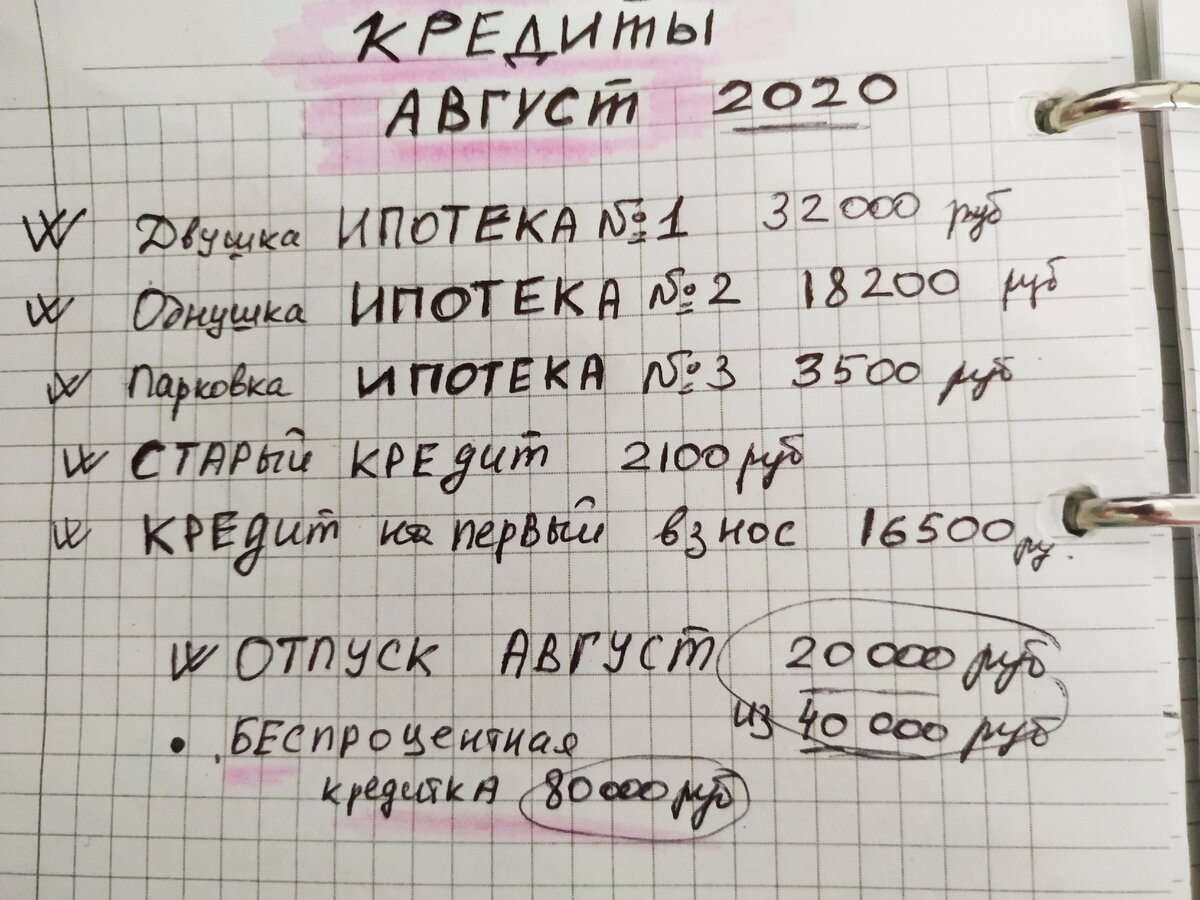 КРЕДИТЫ
АВГУСТ 2020
Двушка ИПОТЕКА №1 32000 руб
Однушка ИПОТЕКА №2 18200 руб
Парковка ИПОТЕКА №3 3500 руб
СТАРЫЙ КРЕДИТ 2100 руб
КРЕДИТ на первый взнос 16500 ру.
ОТПУСК АВГУСТ 20 000 руб
из 40 000 руб
• БЕСПРОЦЕНТНАЯ
кредитка 80000 руб